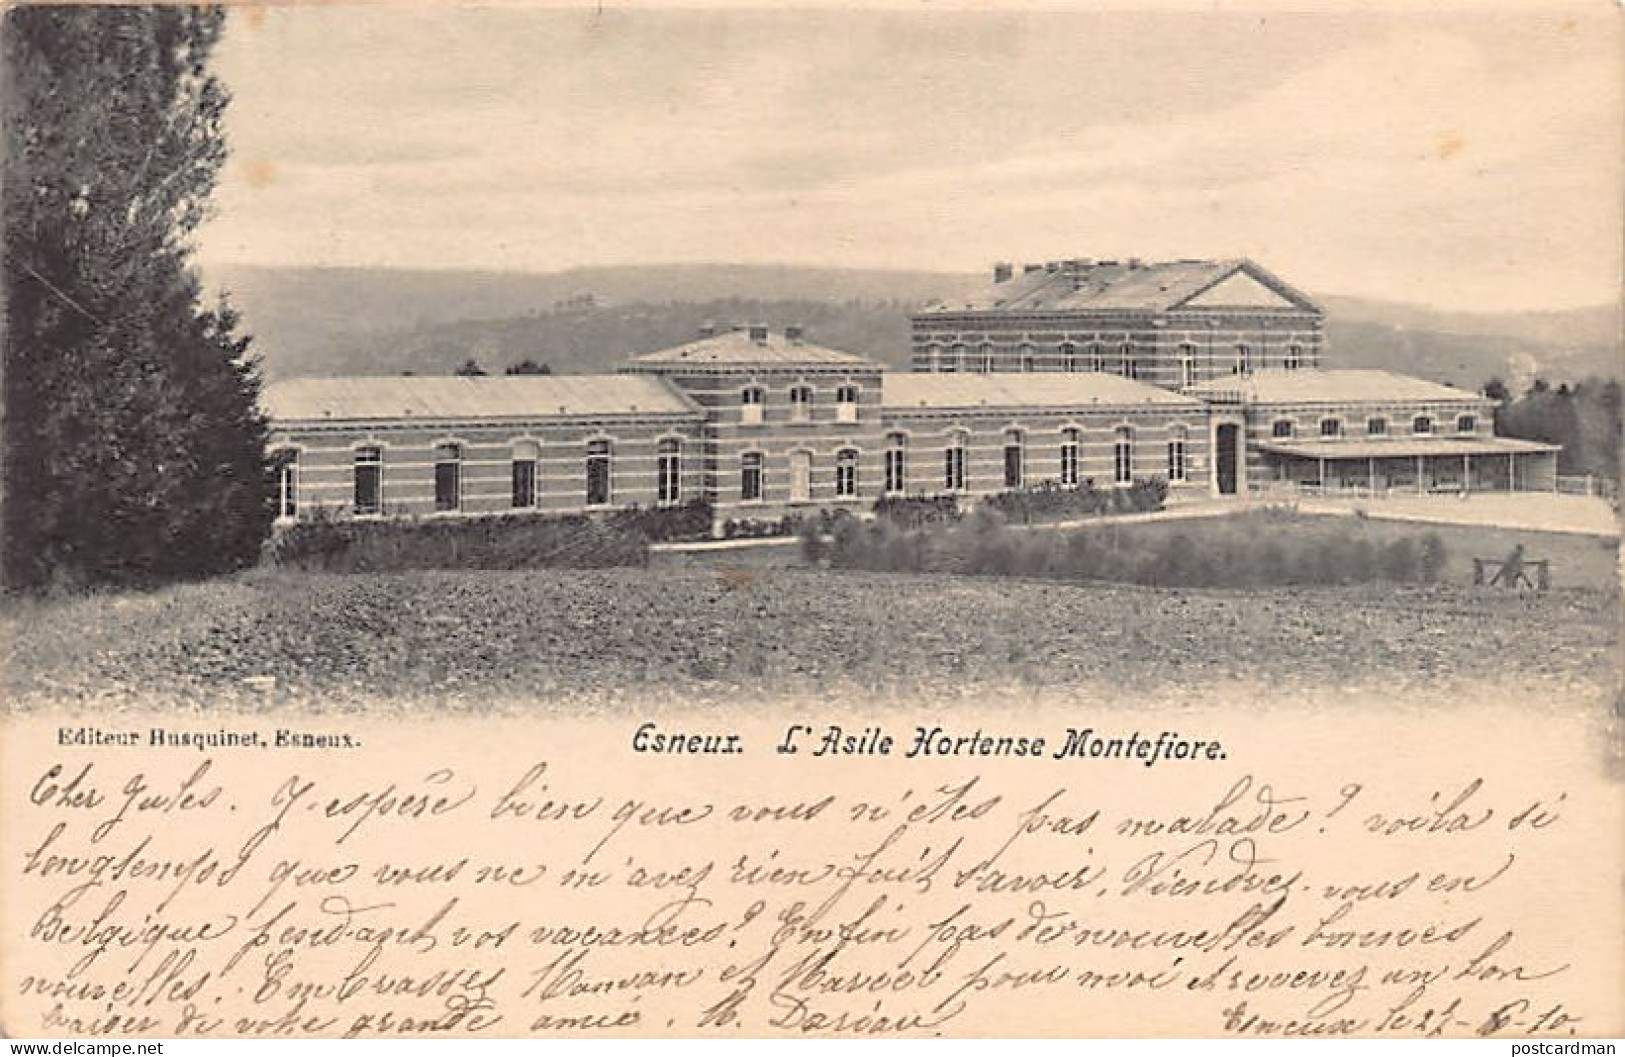 Editeur Husquinet, Esneux.
Esneux. L'Asile Hortense Montefiore.
Cher Jules. J'espère bien que vous n'êtes pas malade? voila si
longtemps que vous ne m'avez rien fait savoir. Viendrez-vous en
Belgique pendant vos vacances? Enfin pas de nouvelles bonnes
nouvelles. Embrassez Maman et Marcel pour moi et recevez un bon
baiser de votre grande amie. M.
Esneux le
delcampe.net
postcardman